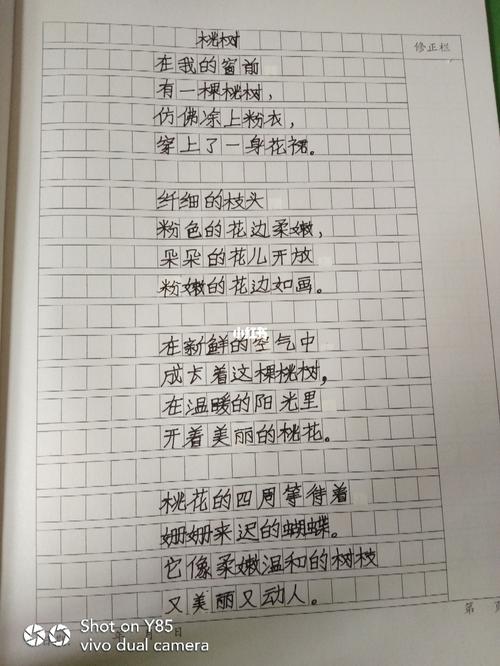 桃树
修正栏
在我的窗前
有一棵桃树，
仿佛涂上粉衣，
穿上了一身花裙。
纤细的枝头
粉色的花边柔嫩，
朵朵的花儿开放
粉嫩的花边如画。
小红书
在新鲜的空气中
成长着这棵桃树，
在温暖的阳光里
开着美丽的桃花。
桃花的四周等待着
姗姗来迟的蝴蝶。
它像柔嫩温和的树枝
又美丽又动人。
年 月 日
第 页
Shot on Y85
vivo dual camera